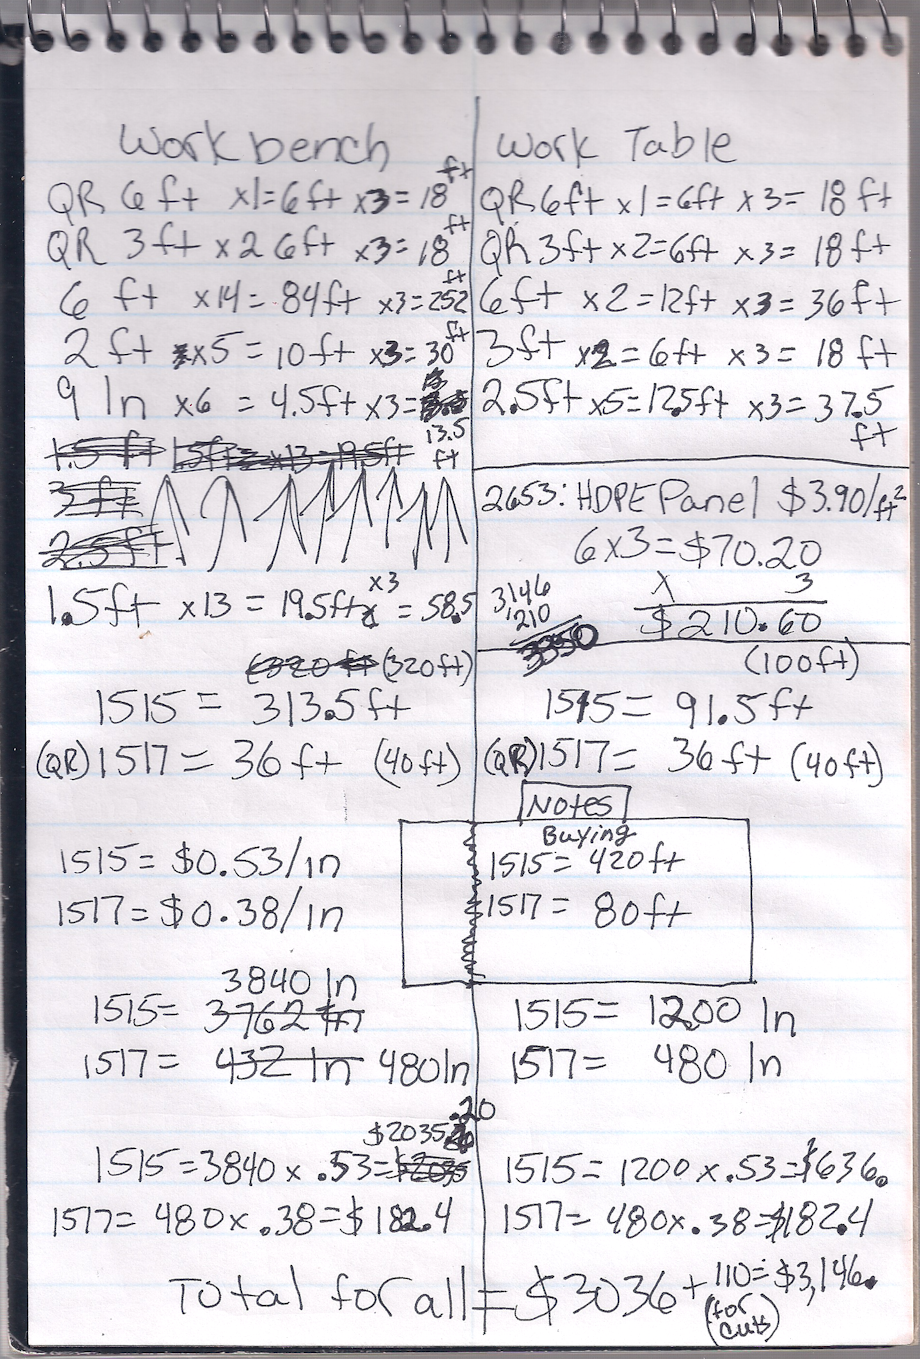 Workbench
QR 6ft x1=6ft x3=18 ft
QR 3ft x2 6ft x3=18 ft
6 ft x14= 84ft x3=252 ft
2ft x5= 10ft x3=30 ft
9 In x6 = 4.5ft x3=
13.5 ft
1.5 ft 1.5ft x13=19.5ft
3ft
2.5ft
1.5ft x13 = 19.5ft x3 = 58.5
(320ft)
1515= 313.5ft
(QR)1517= 36ft (40ft)
1515= $0.53/in
1517=$0.38/in
3840 In
1515= 3762 In
1517= 432 In 480In
$2035.20
1515=3840x.53=$2035
1517= 480x.38=$182.4
Work Table
QR6ft x1=6ft x3= 18ft
QR3ft x2=6ft x3= 18ft
6ft x2=12ft x3= 36ft
3ft x2=6ft x3= 18ft
2.5ft x5=12.5ft x3= 37.5
ft
2653: HDPE Panel $3.90/ft²
6x3=$70.20
x 3
$210.60
3146
210
3350
(100ft)
1515= 91.5ft
(QR)1517= 36ft (40ft)
Notes
Buying
1515= 420ft
1517= 80ft
1515= 1200 In
1517= 480 In
1515= 1200x.53=$636.
1517= 480x.38=$182.4
Total for all = $3036 + 110=$3,146.
(for cuts)